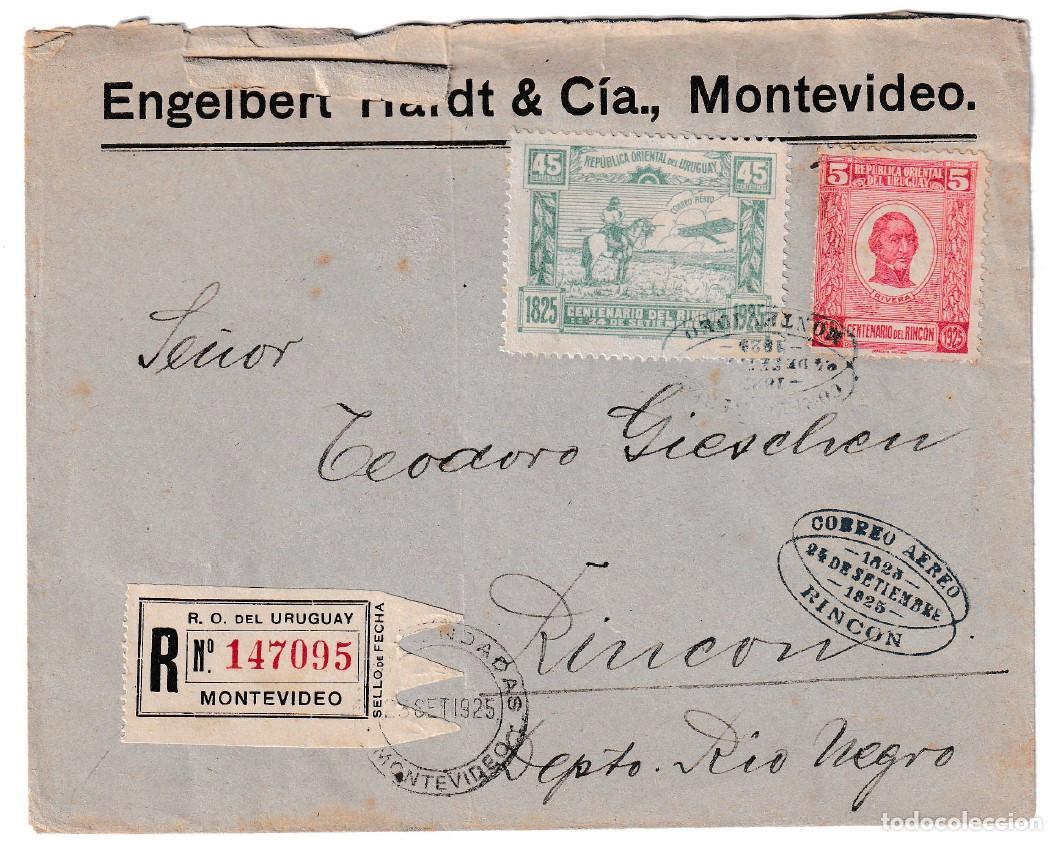 Engelbert Hardt & Cía., Montevideo.
45 45
CENTESIMOS CENTESIMOS
REPÚBLICA ORIENTAL DEL URUGUAY
CORREO AÉREO
1825 1925
CENTENARIO DEL RINCÓN
24 DE SETIEMBRE
5 5
REPÚBLICA ORIENTAL
DEL URUGUAY
(RIVERA)
CENTENARIO DEL RINCÓN
1925
MONTEVIDEO
Señor
Teodoro Gieschen
Rincon
Depto. Rio Negro
CORREO AEREO
—1825—
24 DE SETIEMBRE
—1925—
RINCON
R. O. DEL URUGUAY
R Nº 147095
MONTEVIDEO
SELLO DE FECHA
NDADAS
SET 1925
MONTEVIDEO
todocoleccion